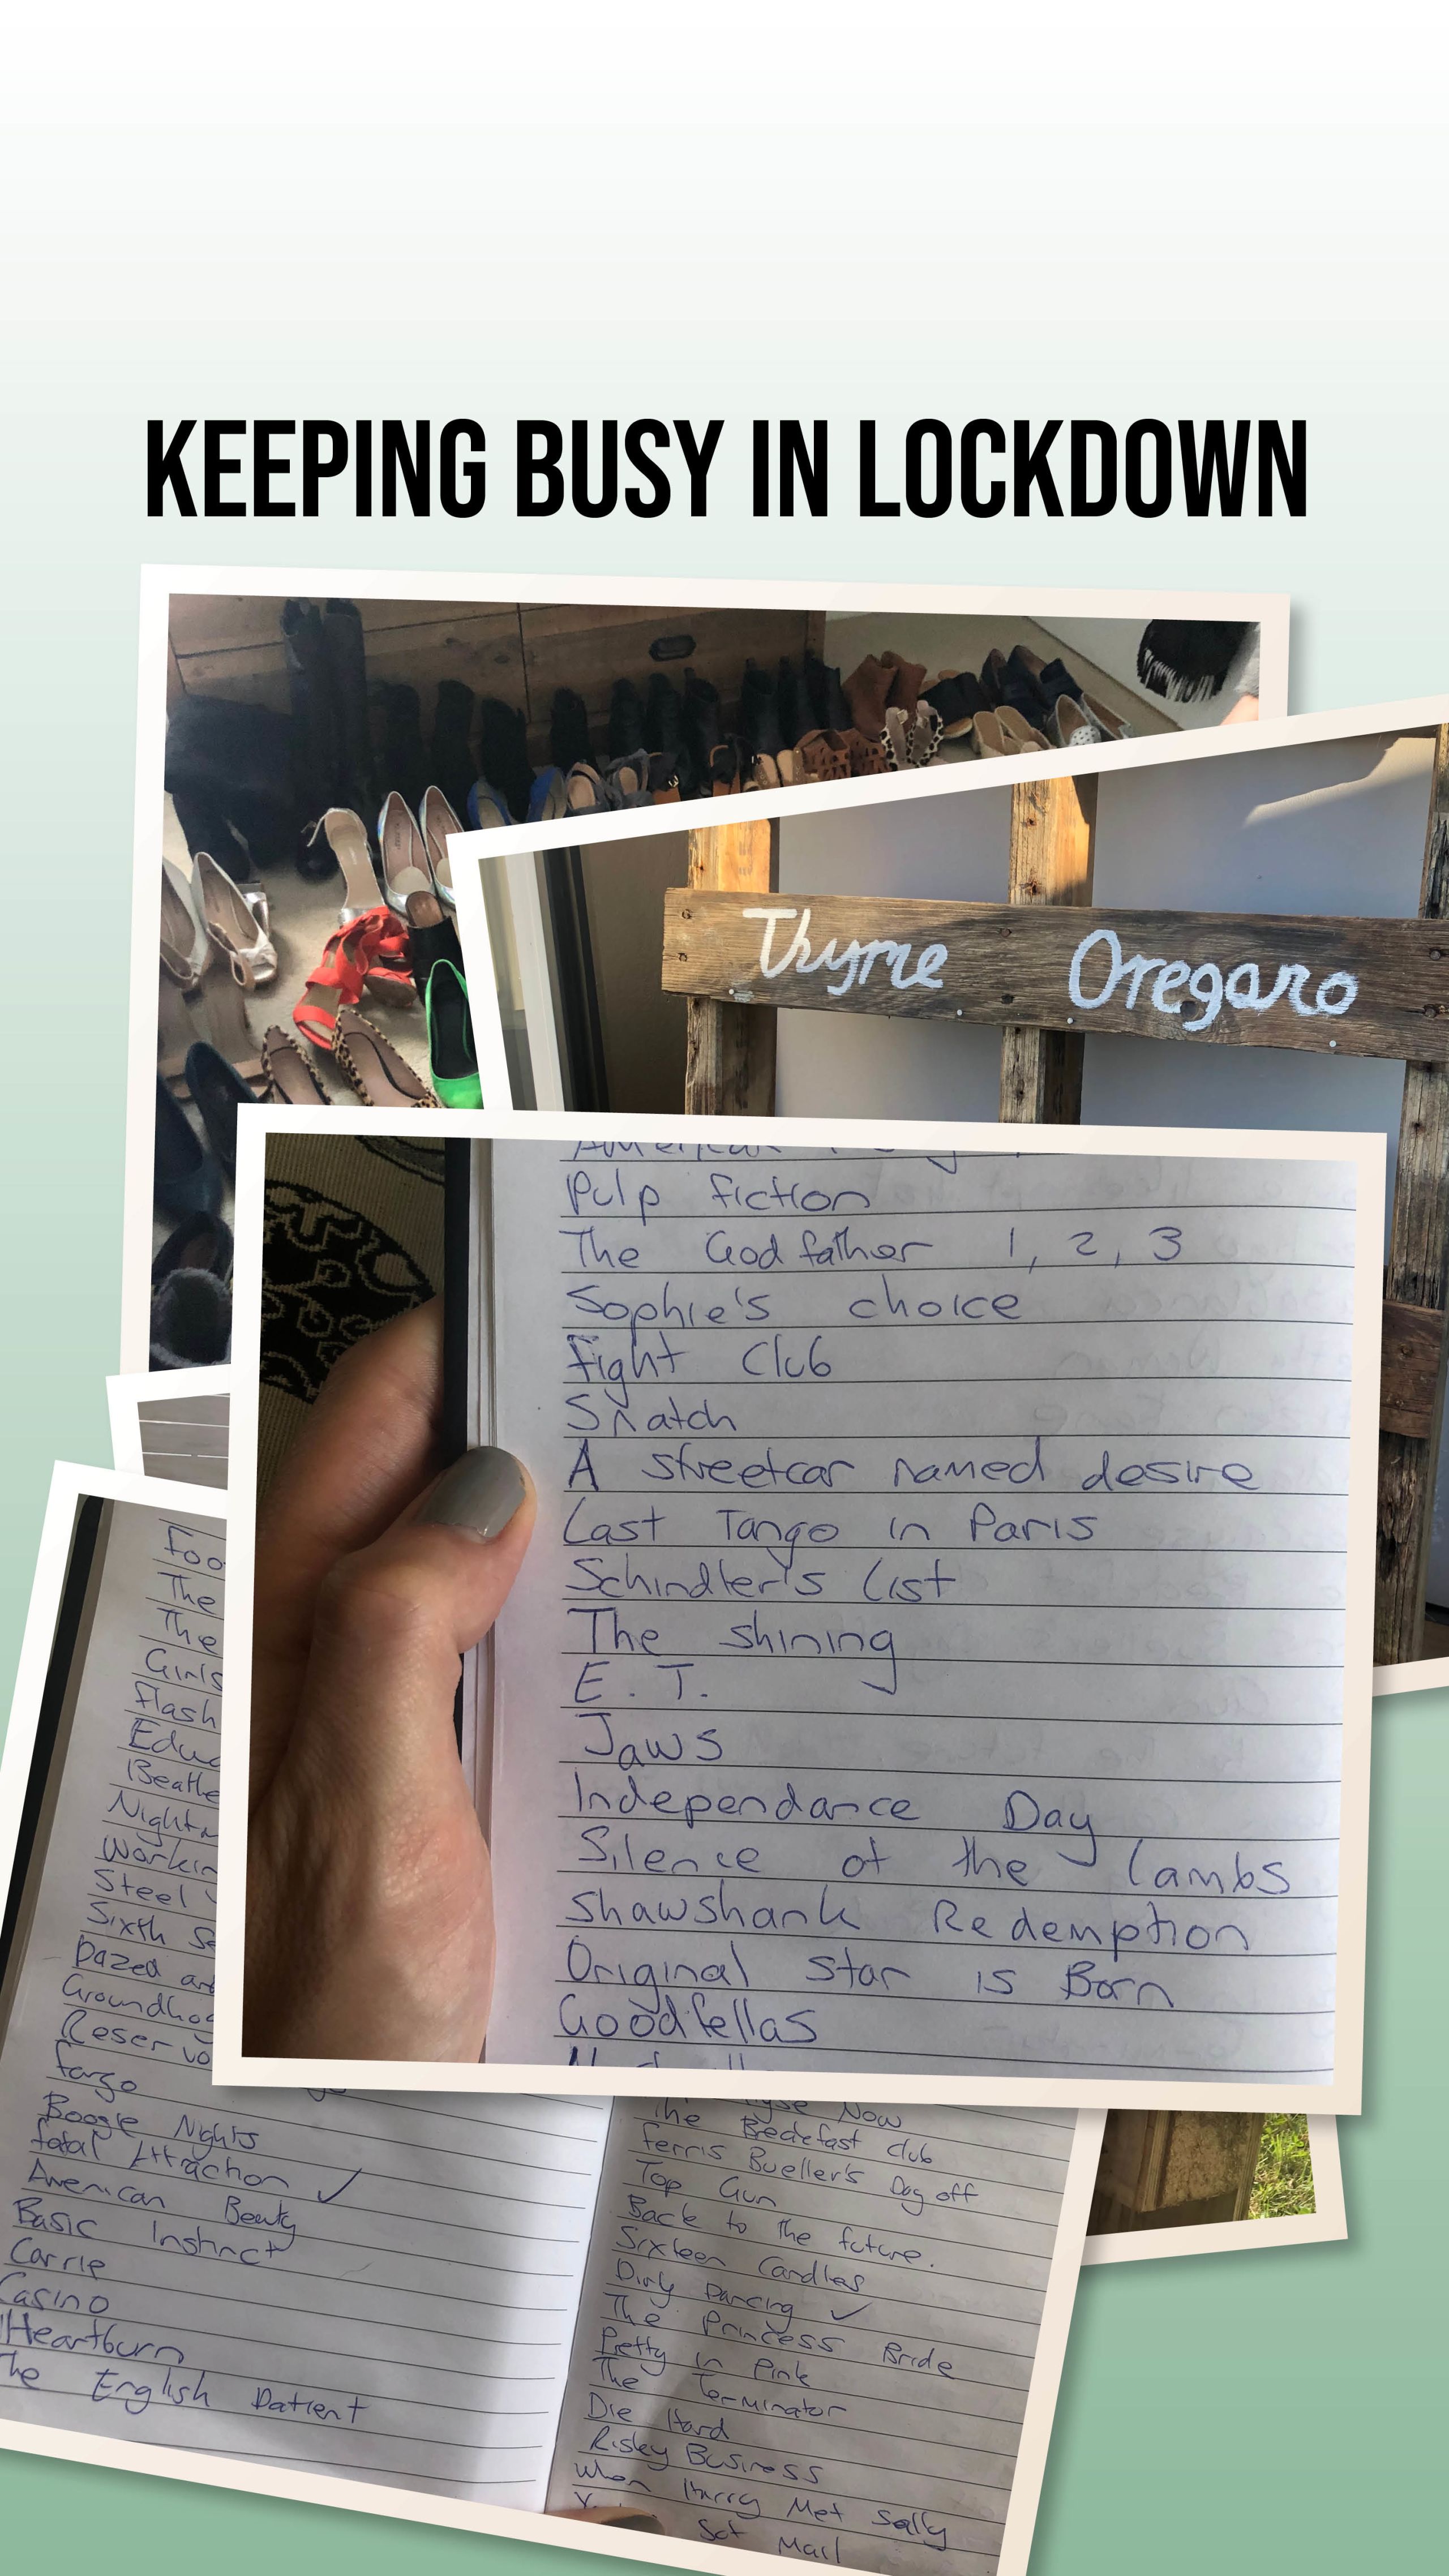 KEEPING BUSY IN LOCKDOWN
Thyme Oregano
Pulp fiction
The Godfather 1, 2, 3
Sophie's choice
fight Club
Snatch
A streetcar named desire
Last Tango in Paris
Schindler's List
The shining
E.T.
Jaws
Independance Day
Silence of the lambs
Shawshank Redemption
Original star is Born
Goodfellas
Foo
The
The
Girls
flash
Educ
Beatle
Night
Workin
Steel
Sixth Se
Dazed an
Groundho
Reservo
fargo
Boogie Nights
fatal Attraction ✓
American Beauty
Basic Instinct
Carrie
Casino
Heartburn
The English Patient
Now
The Breakfast club
ferris Bueller's Day off
Top Gun
Back to the future.
Sixteen Candles
Dirty Dancing ✓
The Princess Bride
Pretty in Pink
The Terminator
Die Hard
Risky Business
When Harry Met Sally
Mail